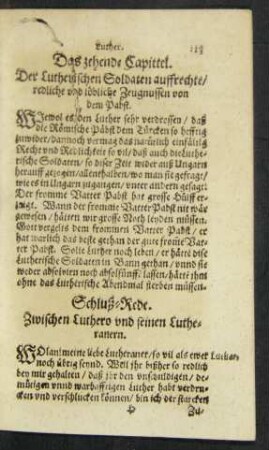 Luther.
118
Das zehende Capittel.
Der Lutherischen Soldaten auffrechte/
redliche vnd löbliche Zeugnussen von
dem Pabst.
WJewol es den Luther sehr verdrossen / daß
die Römische Päbst dem Türcken so hefftig
zuwider / dannoch vermag das natürlich einfältig
Recht vnd Redlichkeit so vil / daß auch die Luthe-
rische Soldaten / so diser Zeit wider auß Ungarn
herauff gezogen / allenthalben / wo man sie gefragt /
wie es in Ungarn zugangen / vnter andern gesagt:
Der fromme Vatter Pabst hat grosse Hülff er-
zeigt. Wann der fromme Vatter Pabst nit wär
gewesen / hätten wir grosse Noth leyden müssen.
Gott vergelts dem frommen Vatter Pabst / er
hat warlich das beste gethan der gute fromme Vat-
ter Pabst. Solte Luther noch leben / er hätte dise
Lutherische Soldaten in Bann gethan / vnnd sie
weder absolvirn noch abspeisen lassen / hätte ihm
ohne das Lutherische Abendmal sterben müssen.
Schluß-Rede.
Zwischen Luthero vnd seinen Luthe-
ranern.
WOlan! meine liebe Lutheraner / so vil als ewer Luther
noch übrig seynd. Weil jhr bißher so redlich
bey mir gehalten / daß jhr den vnschuldigen / de-
mütigen vnnd warhafftigen Luther habt verdru-
cken vnd verschlucken können / bin ich der starcken
P
Zu-